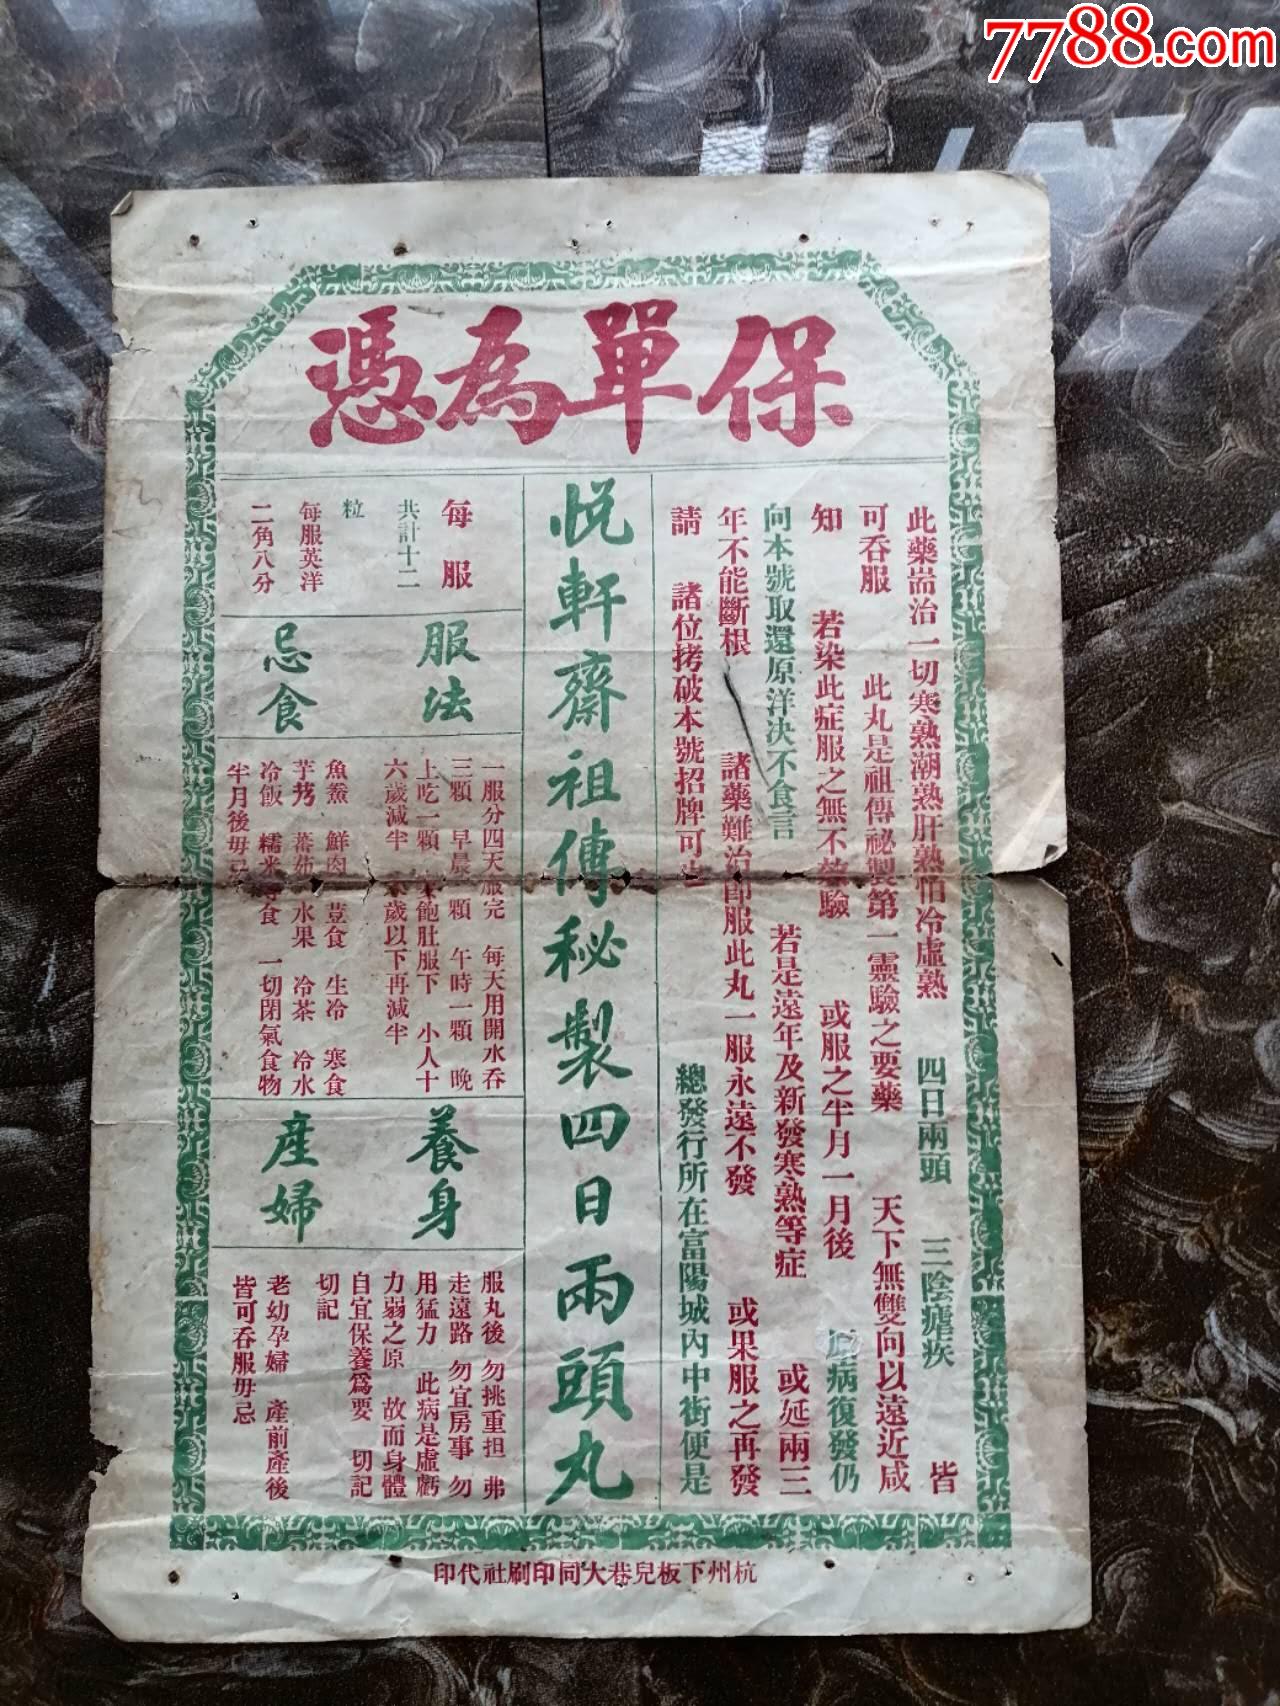 7788.com
保單為憑
此藥耑治一切寒熱潮熱肝熱怕冷虛熱 四日兩頭 三陰瘧疾 皆
可吞服 此丸是祖傳祕製第一靈驗之要藥 天下無雙向以遠近咸
知 若染此症服之無不效驗 或服之半月一月後 病復發仍
向本號取還原洋決不食言 若是遠年及新發寒熱等症 或延兩三
年不能斷根 諸藥難治卽服此丸一服永遠不發 或果服之再發
請 諸位拷破本號招牌可也 總發行所在富陽城內中街便是
悅軒齋祖傳秘製四日兩頭丸
每服
共計十二
粒
每服英洋
二角八分
服法
忌食
一服分四天服完 每天用開水吞
三顆 早晨一顆 午時一顆 晚
上吃一顆 飽肚服下 小人十
六歲減半 歲以下再減半
魚鯗 鮮肉 荳食 生冷 寒食
芋艿 蕃茄 水果 冷茶 冷水
冷飯 糯米 食 一切閉氣食物
半月後毋忌
養身
產婦
服丸後 勿挑重担 弗
走遠路 勿宜房事 勿
用猛力 此病是虛虧
力弱之原 故而身體
自宜保養爲要 切記
切記
老幼孕婦 產前產後
皆可吞服毋忌
杭州下板兒巷大同印刷社代印